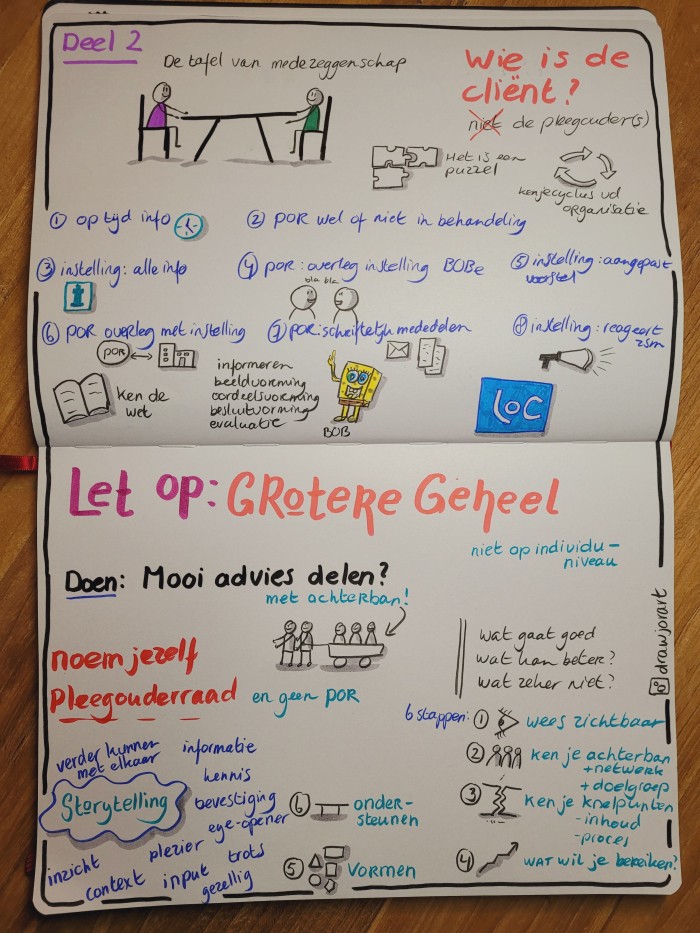 Deel 2
De tafel van medezeggenschap
Wie is de
cliënt?
niet de pleegouder(s)
Het is een
puzzel
ken je cyclus vd
organisatie
① op tijd info
② POR wel of niet in behandeling
③ instelling: alle info
i
④ POR: overleg instelling BOBe
bla bla
⑤ instelling: aangepast
voorstel
⑥ POR overleg met instelling
POR
⑦ POR: schriftelijk mededelen
⑧ instelling: reageert
zsm
ken de
wet
informeren
beeldvorming
oordeelsvorming
besluitvorming
evaluatie
BOB
LOC
Let op: Grotere Geheel
niet op individu-
niveau
Doen: Mooi advies delen?
met achterban!
noem jezelf
Pleegouderraad en geen POR
wat gaat goed
wat kan beter?
wat zeker niet?
@drawjorart
6 stappen: ① wees zichtbaar
② ken je achterban
+ netwerk
+ doelgroep
③ ken je knelpunten
- inhoud
- proces
④ wat wil je bereiken?
⑤ vormen
⑥ onder-
steunen
verder kunnen
met elkaar
informatie
kennis
Storytelling
bevestiging
eye-opener
plezier
trots
inzicht
context
input
gezellig